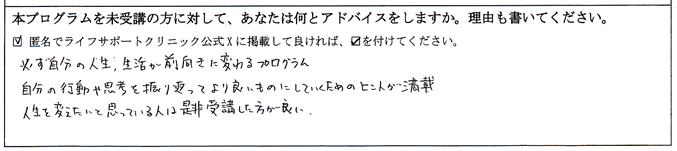 本プログラムを未受講の方に対して、あなたは何とアドバイスをしますか。理由も書いてください。
☑ 匿名でライフサポートクリニック公式 X に掲載して良ければ、☑を付けてください。
必ず自分の人生、生活が前向きに変わるプログラム
自分の行動や思考を振り返ってより良いものにしていくためのヒントが満載
人生を変えたいと思っている人は是非受講した方が良い.